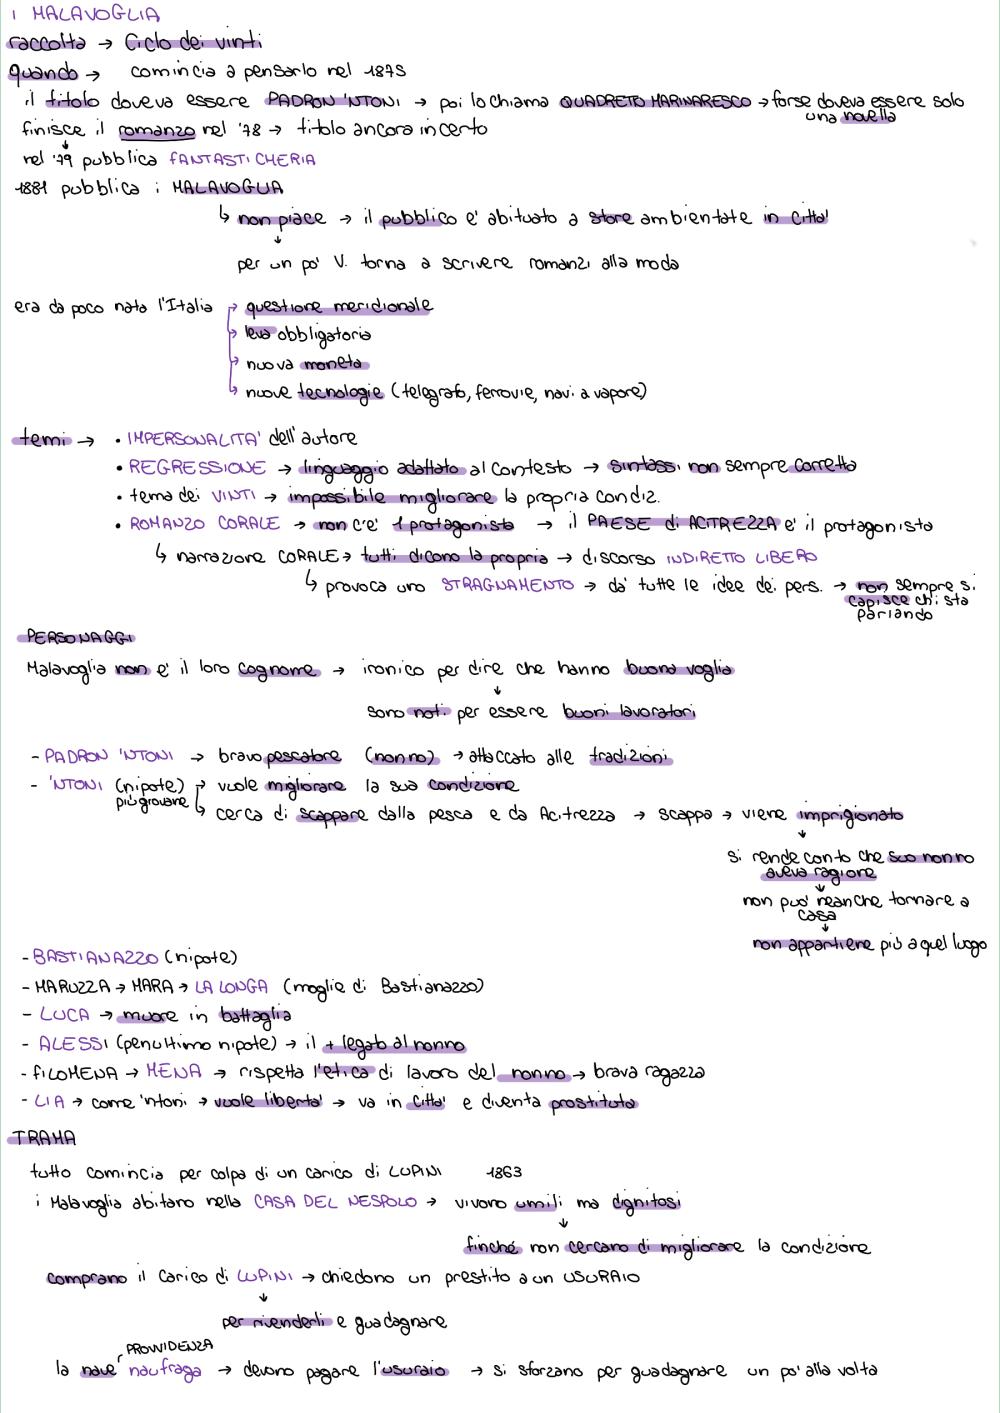 i MALAVOGLIA
raccolta → Ciclo dei vinti
quando → comincia a pensarlo nel 1875
il titolo doveva essere PADRON 'NTONI → poi lo chiama QUADRETO MARINARESCO → forse doveva essere solo
una novella
finisce il romanzo nel '78 → titolo ancora incerto
↓
nel '79 pubblica FANTASTICHERIA
1881 pubblica i MALAVOGLIA
↳ non piace → il pubblico e' abituato a store ambientate in citta'
↓
per un po' V. torna a scrivere romanzi alla moda
era da poco nata l'Italia → questione meridionale
→ leva obbligatoria
→ nuova moneta
→ nuove tecnologie (telegrafo, ferrovie, navi a vapore)
temi → • IMPERSONALITA' dell'autore
• REGRESSIONE → linguaggio adattato al contesto → sintassi non sempre corretta
• tema dei VINTI → impossibile migliorare la propria condiz.
• ROMANZO CORALE → non c'e' 1 protagonista → il PAESE di ACITREZZA e' il protagonista
↳ narrazione CORALE → tutti dicono la propria → discorso INDIRETTO LIBERO
↳ provoca uno STRAGNAMENTO → da' tutte le idee dei pers. → non sempre si
capisce chi sta
parlando
PERSONAGGI
Malavoglia non e' il loro cognome → ironico per dire che hanno buona voglia
↓
sono noti per essere buoni lavoratori
- PADRON 'NTONI → bravo pescatore (nonno) → attaccato alle tradizioni
- 'NTONI (nipote) → vuole migliorare la sua condizione
più giovane ↳ cerca di scappare dalla pesca e da Acitrezza → scappa → viene imprigionato
↓
si rende conto che suo nonno
aveva ragione
↓
non puo' neanche tornare a
casa
↓
non appartiene più a quel luogo
- BASTIANAZZO (nipote)
- MARUZZA → MARA → LA LONGA (moglie di Bastianazzo)
- LUCA → muore in battaglia
- ALESSI (penultimo nipote) → il + legato al nonno
- FILOMENA → MENA → rispetta l'etica di lavoro del nonno → brava ragazza
- LIA → come 'ntoni → vuole liberta' → va in citta' e diventa prostituta
TRAMA
tutto comincia per colpa di un carico di LUPINI 1863
i Malavoglia abitano nella CASA DEL NESPOLO → vivono umili ma dignitosi
↓
finché non cercano di migliorare la condizione
comprano il carico di LUPINI → chiedono un prestito a un USURAIO
↓
per rivenderli e guadagnare
PROVVIDENZA
la nave naufraga → devono pagare l'usuraio → si sforzano per guadagnare un po' alla volta